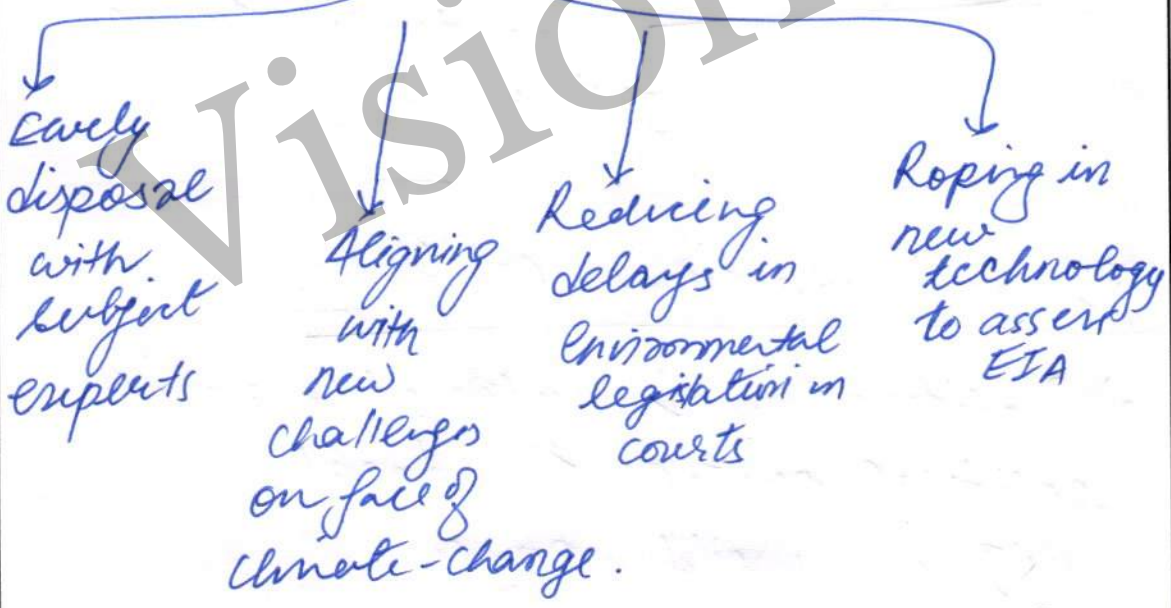 Early
disposal
with
subject
experts
Aligning
with
new
challenges
on face of
climate-change.
Reducing
delays in
environmental
legislation in
courts
Roping in
new
technology
to assess
EIA
Vision